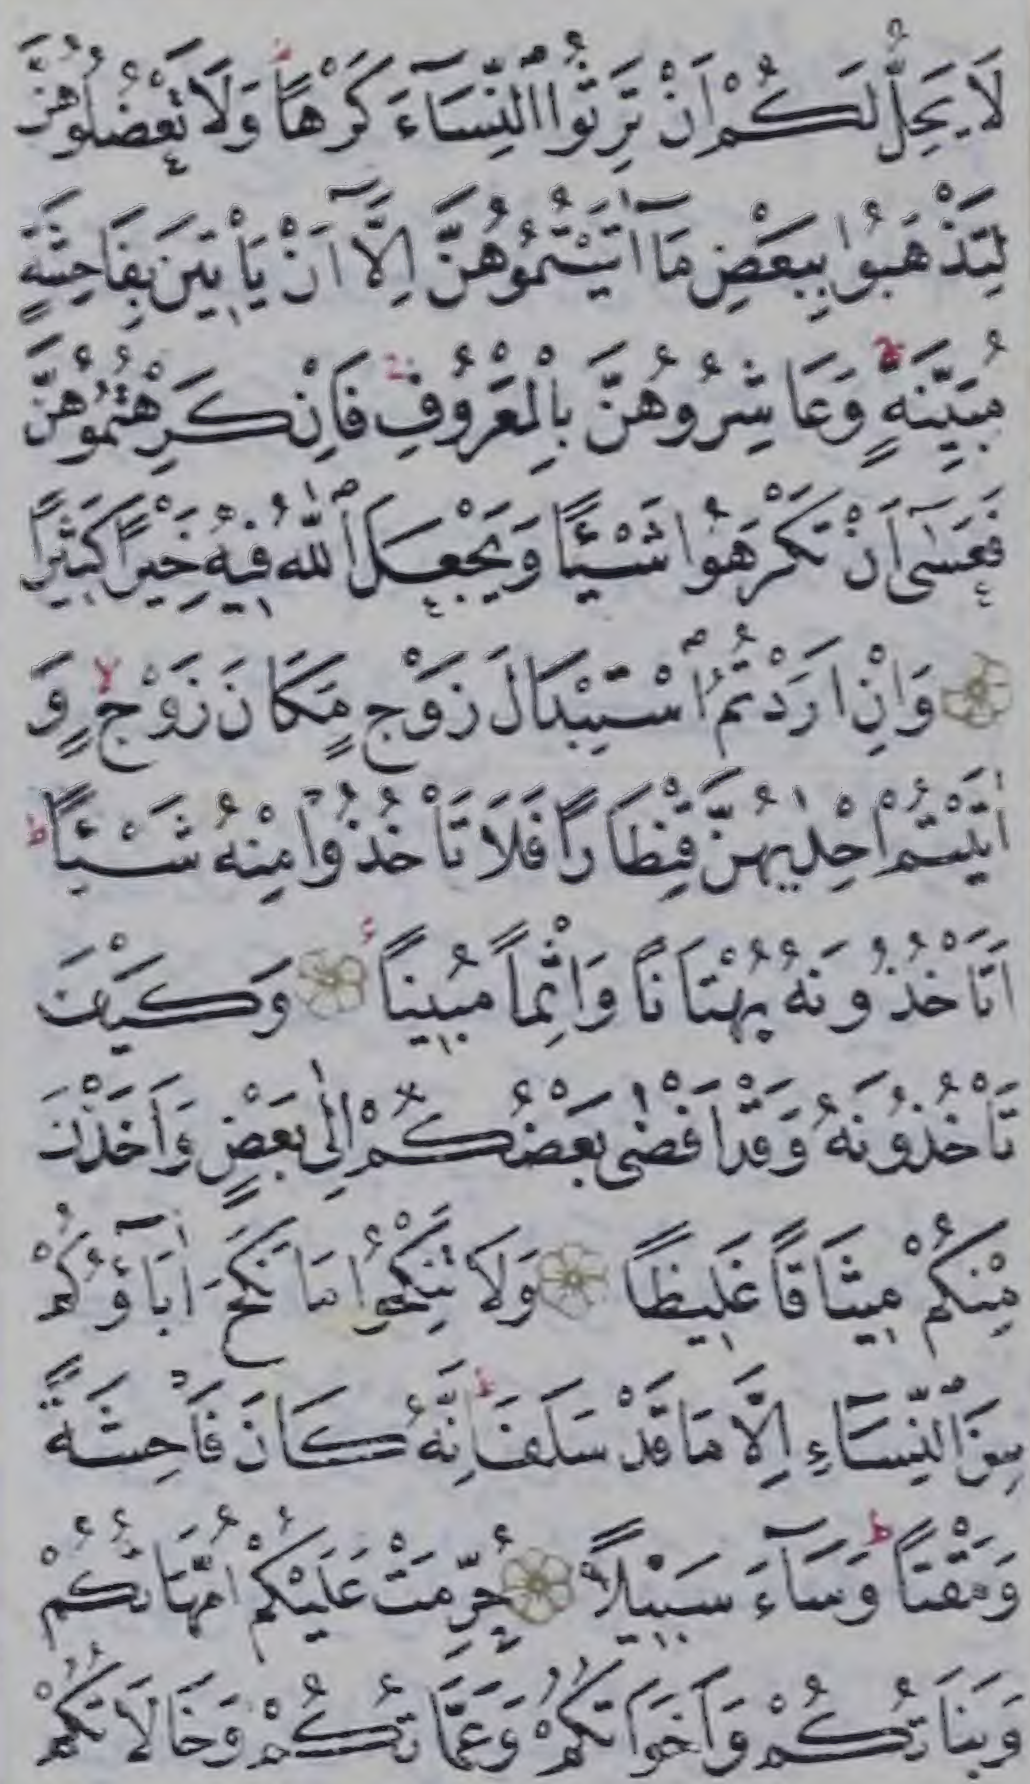 لَا يَحِلُّ لَكُمْ اَنْ تَرِثُوا النِّسَٓاءَ كَرْهاًۜ وَلَا تَعْضُلُوهُنَّ
لِتَذْهَبُوا بِبَعْضِ مَٓا اٰتَيْتُمُوهُنَّ اِلَّٓا اَنْ يَأْت۪ينَ بِفَاحِشَةٍ
مُبَيِّنَةٍۚ وَعَاشِرُوهُنَّ بِالْمَعْرُوفِۚ فَاِنْ كَرِهْتُمُوهُنَّ
فَعَسٰٓى اَنْ تَكْرَهُوا شَيْـٔاً وَيَجْعَلَ اللّٰهُ ف۪يهِ خَيْراً كَث۪يراً
وَاِنْ اَرَدْتُمُ اسْتِبْدَالَ زَوْجٍ مَكَانَ زَوْجٍۙ وَ
اٰتَيْتُمْ اِحْدٰيهُنَّ قِنْطَاراً فَلَا تَأْخُذُوا مِنْهُ شَيْـٔاًۜ
اَتَأْخُذُونَهُ بُهْتَاناً وَاِثْماً مُب۪يناً وَكَيْفَ
تَأْخُذُونَهُ وَقَدْ اَفْضٰى بَعْضُكُمْ اِلٰى بَعْضٍ وَاَخَذْنَ
مِنْكُمْ م۪يثَاقاً غَل۪يظاً وَلَا تَنْكِحُوا مَا نَكَحَ اٰبَٓاؤُ۬كُمْ
مِنَ النِّسَٓاءِ اِلَّا مَا قَدْ سَلَفَۜ اِنَّهُ كَانَ فَاحِشَةً
وَمَقْتاًۜ وَسَٓاءَ سَب۪يلاً حُرِّمَتْ عَلَيْكُمْ اُمَّهَاتُكُمْ
وَبَنَاتُكُمْ وَاَخَوَاتُكُمْ وَعَمَّاتُكُمْ وَخَالَاتُكُمْ